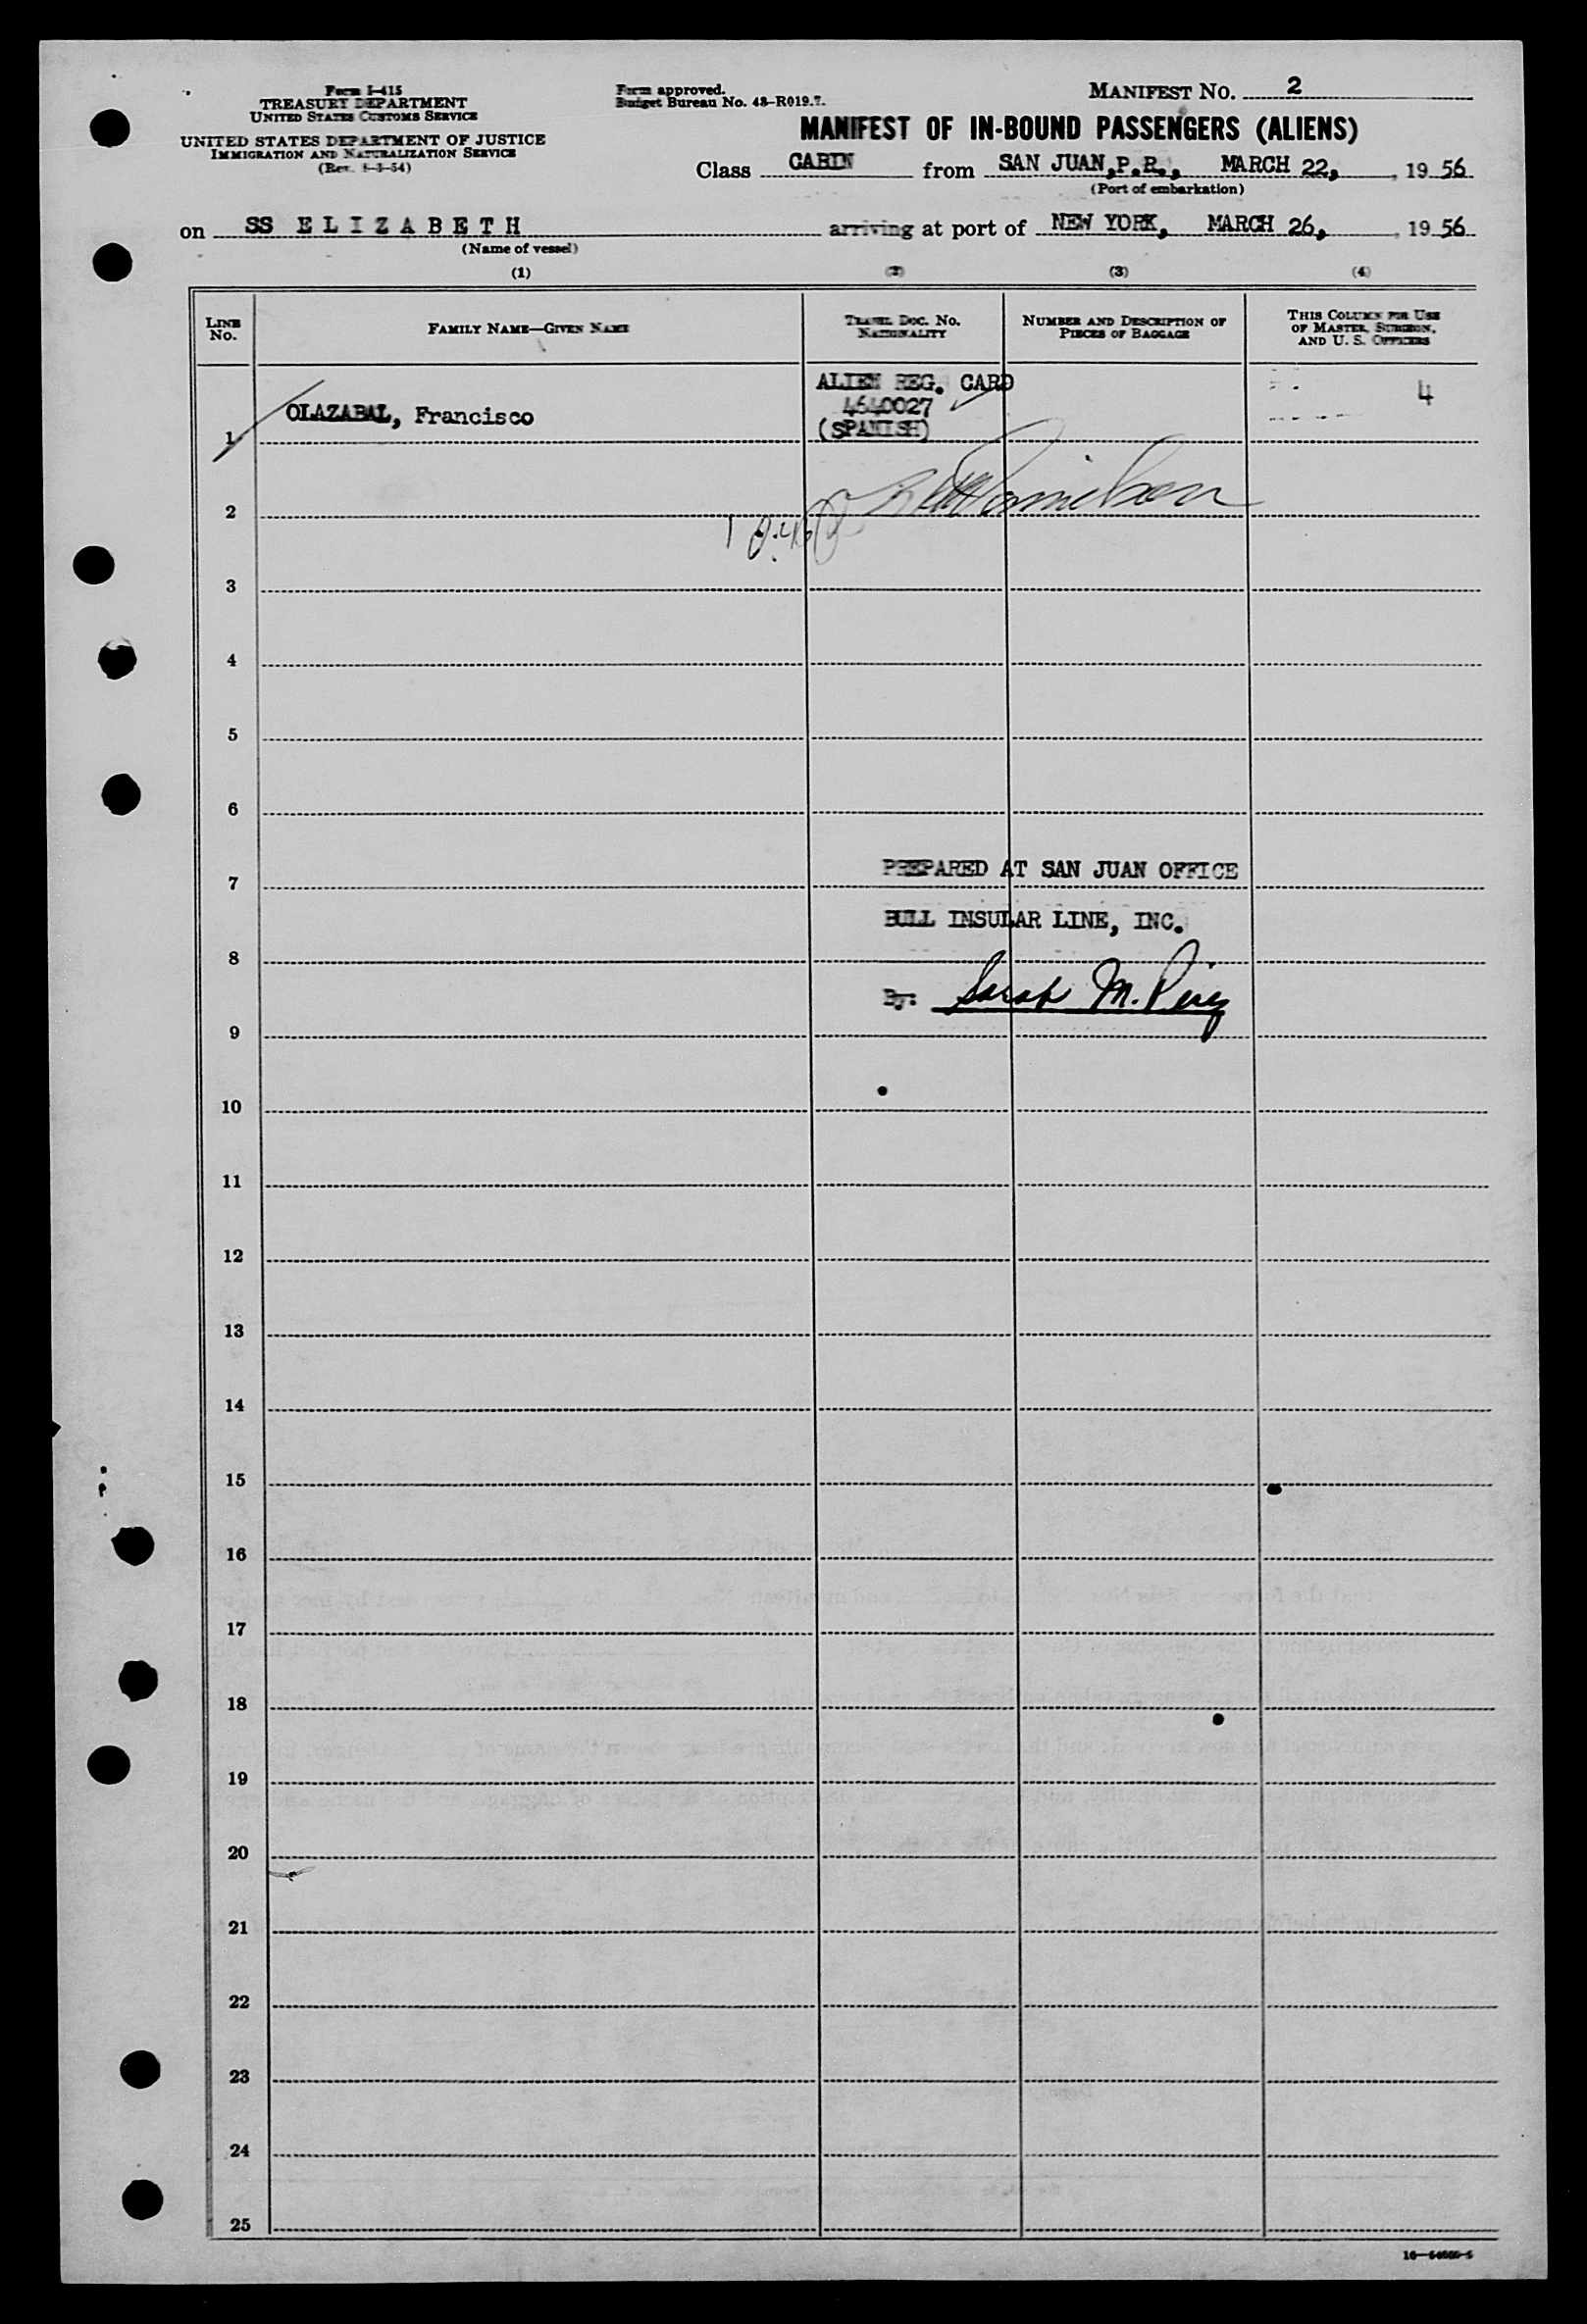 Form I-415
TREASURY DEPARTMENT
UNITED STATES CUSTOMS SERVICE
UNITED STATES DEPARTMENT OF JUSTICE
IMMIGRATION AND NATURALIZATION SERVICE
Form approved.
Budget Bureau No. 43-R019.7.
MANIFEST NO. 2
MANIFEST OF IN-BOUND PASSENGERS (ALIENS)
Class CABIN from SAN JUAN, P.R., MARCH 22, , 19 56
(Port of embarkation)
on SS ELIZABETH arriving at port of NEW YORK, MARCH 26, , 19 56
(Name of vessel)
(1) (2) (3) (4)
LINE NO.
FAMILY NAME—GIVEN NAME
TRAVEL DOC. NO. NATIONALITY
NUMBER AND DESCRIPTION OF PIECES OF BAGGAGE
THIS COLUMN FOR USE OF MASTER, SURGEON, AND U. S. OFFICERS
ALIEN REG. CARD
4
1 OLAZABAL, Francisco 4640027
(SPANISH)
2
3
4
5
6
PREPARED AT SAN JUAN OFFICE
7
BULL INSULAR LINE, INC.
8
By: Sarah M. Pérez
9
10
11
12
13
14
15
16
17
18
19
20
21
22
23
24
25